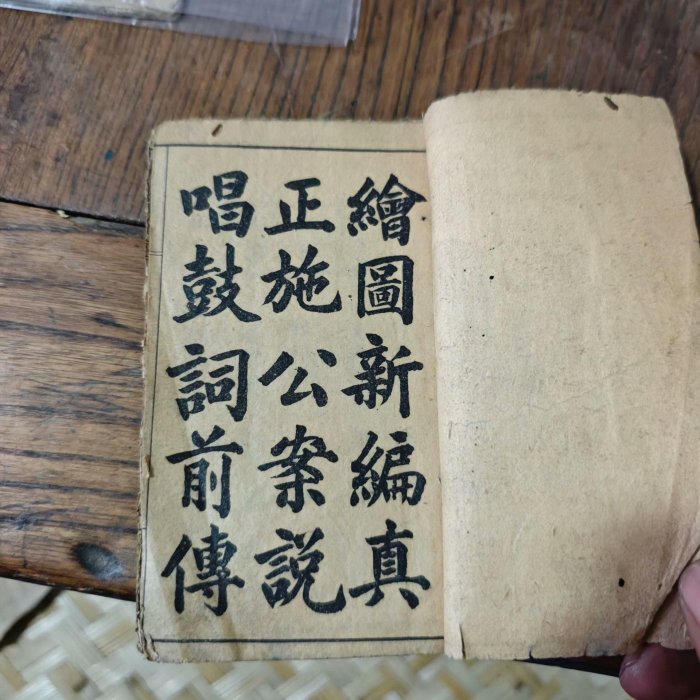 繪圖新編真
正施公案説
唱鼓詞前傳